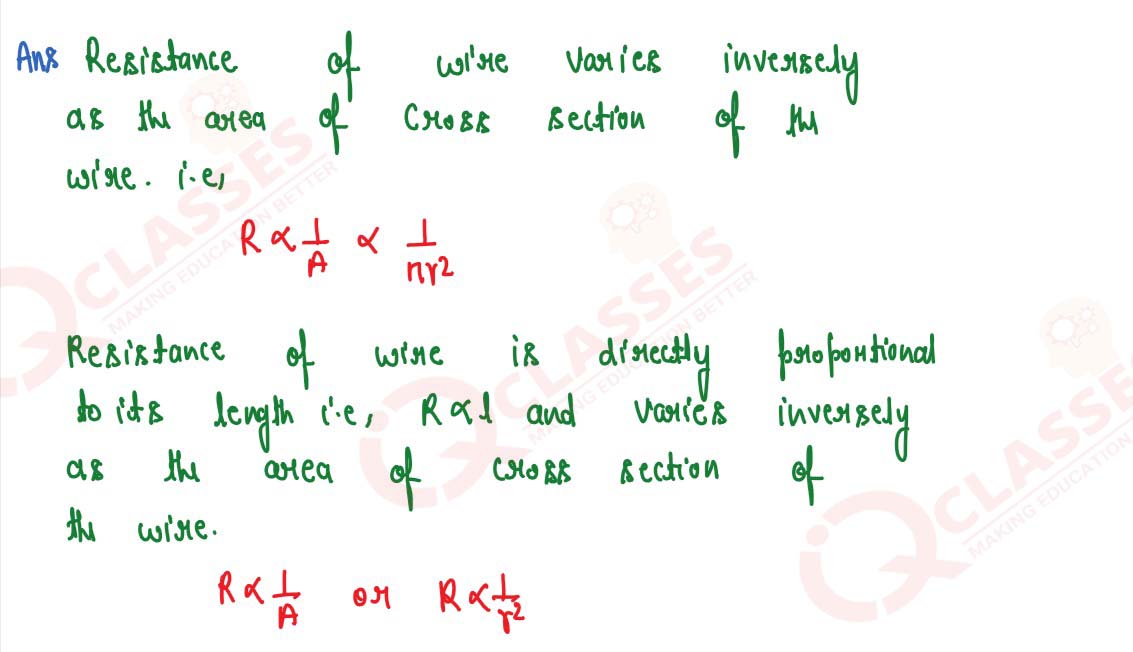 Ans Resistance of wire varies inversely
as the area of cross section of the
wire. i.e,
R ∝ 1/A ∝ 1/πr²
Resistance of wire is directly proportional
to its length i.e, R ∝ l and varies inversely
as the area of cross section of
the wire.
R ∝ 1/A or R ∝ 1/r²
iQ CLASSES
MAKING EDUCATION BETTER
iQ CLASSES
MAKING EDUCATION BETTER
iQ CLASSES
MAKING EDUCATION